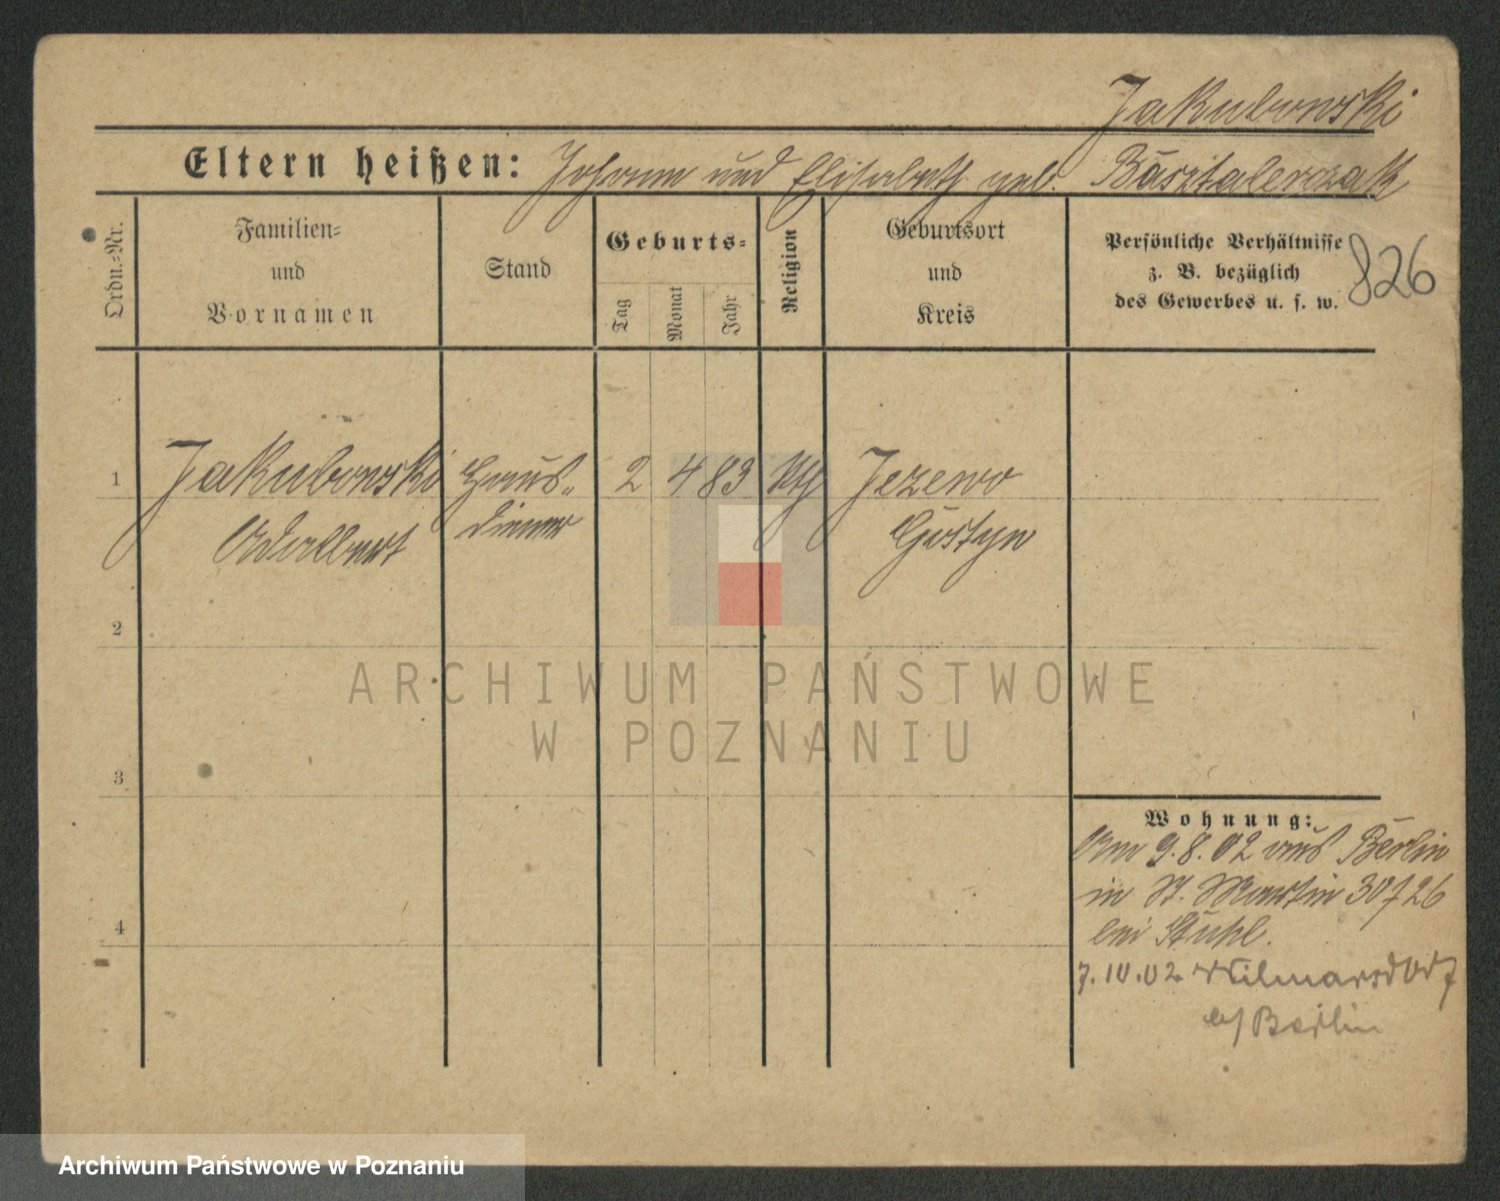 Jakubowski
Eltern heißen: Johann und Elisabeth geb. Basztalerczak
Ordn.-Nr.
Familien-
und
Vornamen
Stand
Geburts-
Tag
Monat
Jahr
Religion
Geburtsort
und
Kreis
Persönliche Verhältnisse
z. B. bezüglich
des Gewerbes u. s. w.
826
1 Jakubowski Haus- 2 4 83 kth Jezewo
Adalbert diener Gostyn
2
ARCHIWUM PAŃSTWOWE
W POZNANIU
3
Wohnung:
Am 9.8.02 aus Berlin
in St. Martin 30726
bei Stuhl.
4
7.10.02 Wilmarsdorf
b/ Berlin
Archiwum Państwowe w Poznaniu